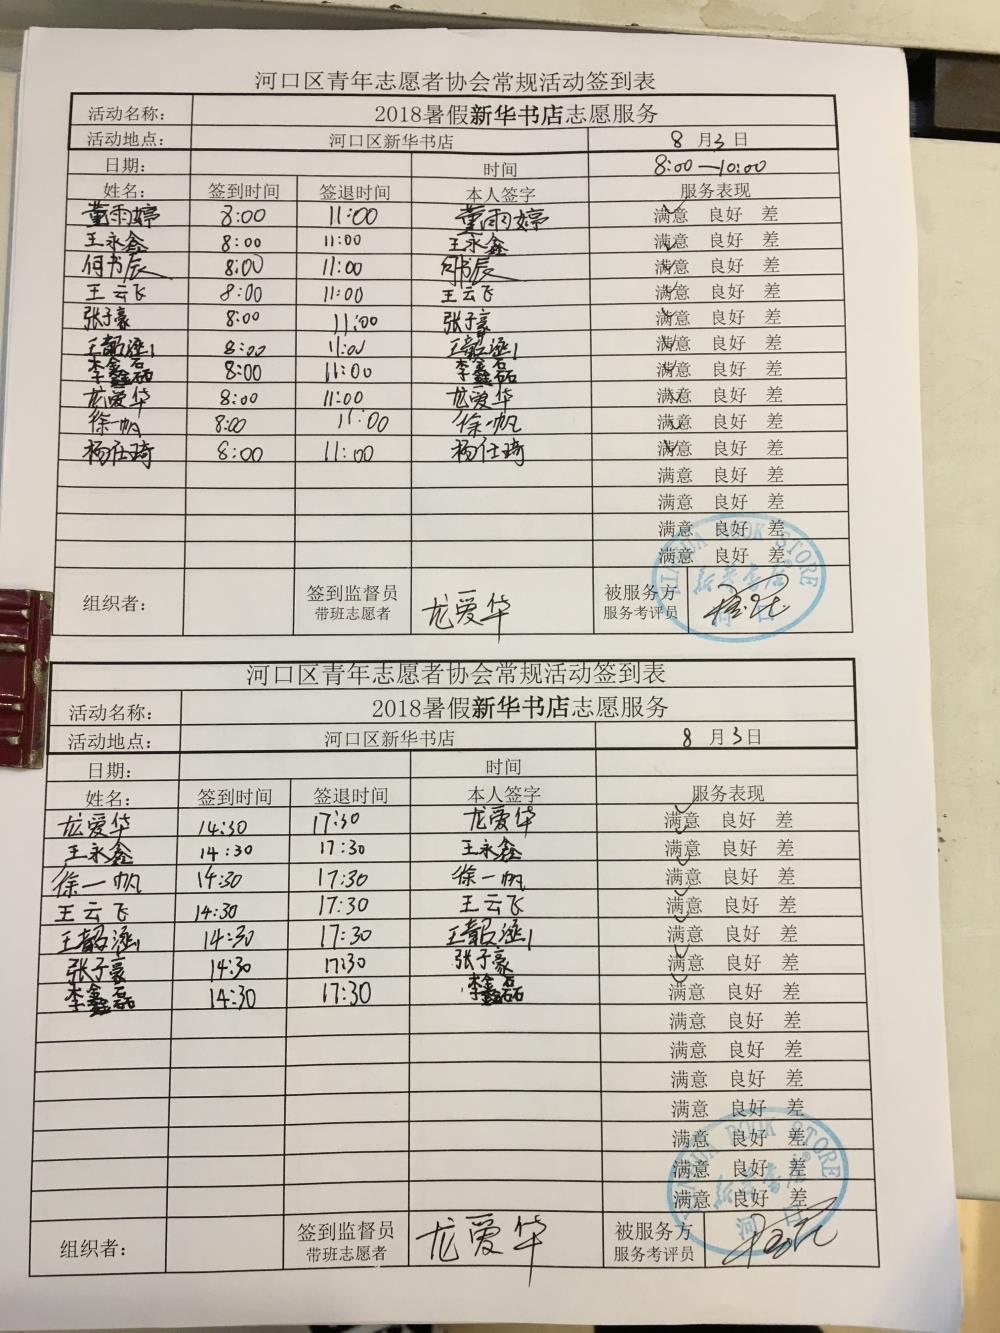 河口区青年志愿者协会常规活动签到表
活动名称： 2018暑假新华书店志愿服务
活动地点： 河口区新华书店 8月3日
日期： 时间 8:00—10:00
姓名： 签到时间 签退时间 本人签字 服务表现
董雨婷 8:00 11:00 董雨婷 满意 良好 差
王永鑫 8:00 11:00 王永鑫 满意 良好 差
何书辰 8:00 11:00 何书辰 满意 良好 差
王云飞 8:00 11:00 王云飞 满意 良好 差
张子豪 8:00 11:00 张子豪 满意 良好 差
王韶涵 8:00 11:00 王韶涵 满意 良好 差
李鑫磊 8:00 11:00 李鑫磊 满意 良好 差
龙爱华 8:00 11:00 龙爱华 满意 良好 差
徐一帆 8:00 11:00 徐一帆 满意 良好 差
杨任琦 8:00 11:00 杨任琦 满意 良好 差
满意 良好 差
满意 良好 差
满意 良好 差
满意 良好 差
XINHUA BOOK STORE
新华书店
河口
组织者： 签到监督员 龙爱华 被服务方
带班志愿者 服务考评员
河口区青年志愿者协会常规活动签到表
活动名称： 2018暑假新华书店志愿服务
活动地点： 河口区新华书店 8月3日
日期： 时间
姓名： 签到时间 签退时间 本人签字 服务表现
龙爱华 14:30 17:30 龙爱华 满意 良好 差
王永鑫 14:30 17:30 王永鑫 满意 良好 差
徐一帆 14:30 17:30 徐一帆 满意 良好 差
王云飞 14:30 17:30 王云飞 满意 良好 差
王韶涵 14:30 17:30 王韶涵 满意 良好 差
张子豪 14:30 17:30 张子豪 满意 良好 差
李鑫磊 14:30 17:30 李鑫磊 满意 良好 差
满意 良好 差
满意 良好 差
满意 良好 差
满意 良好 差
满意 良好 差
满意 良好 差
满意 良好 差
XINHUA BOOK STORE
新华书店
河口
组织者： 签到监督员 龙爱华 被服务方
带班志愿者 服务考评员